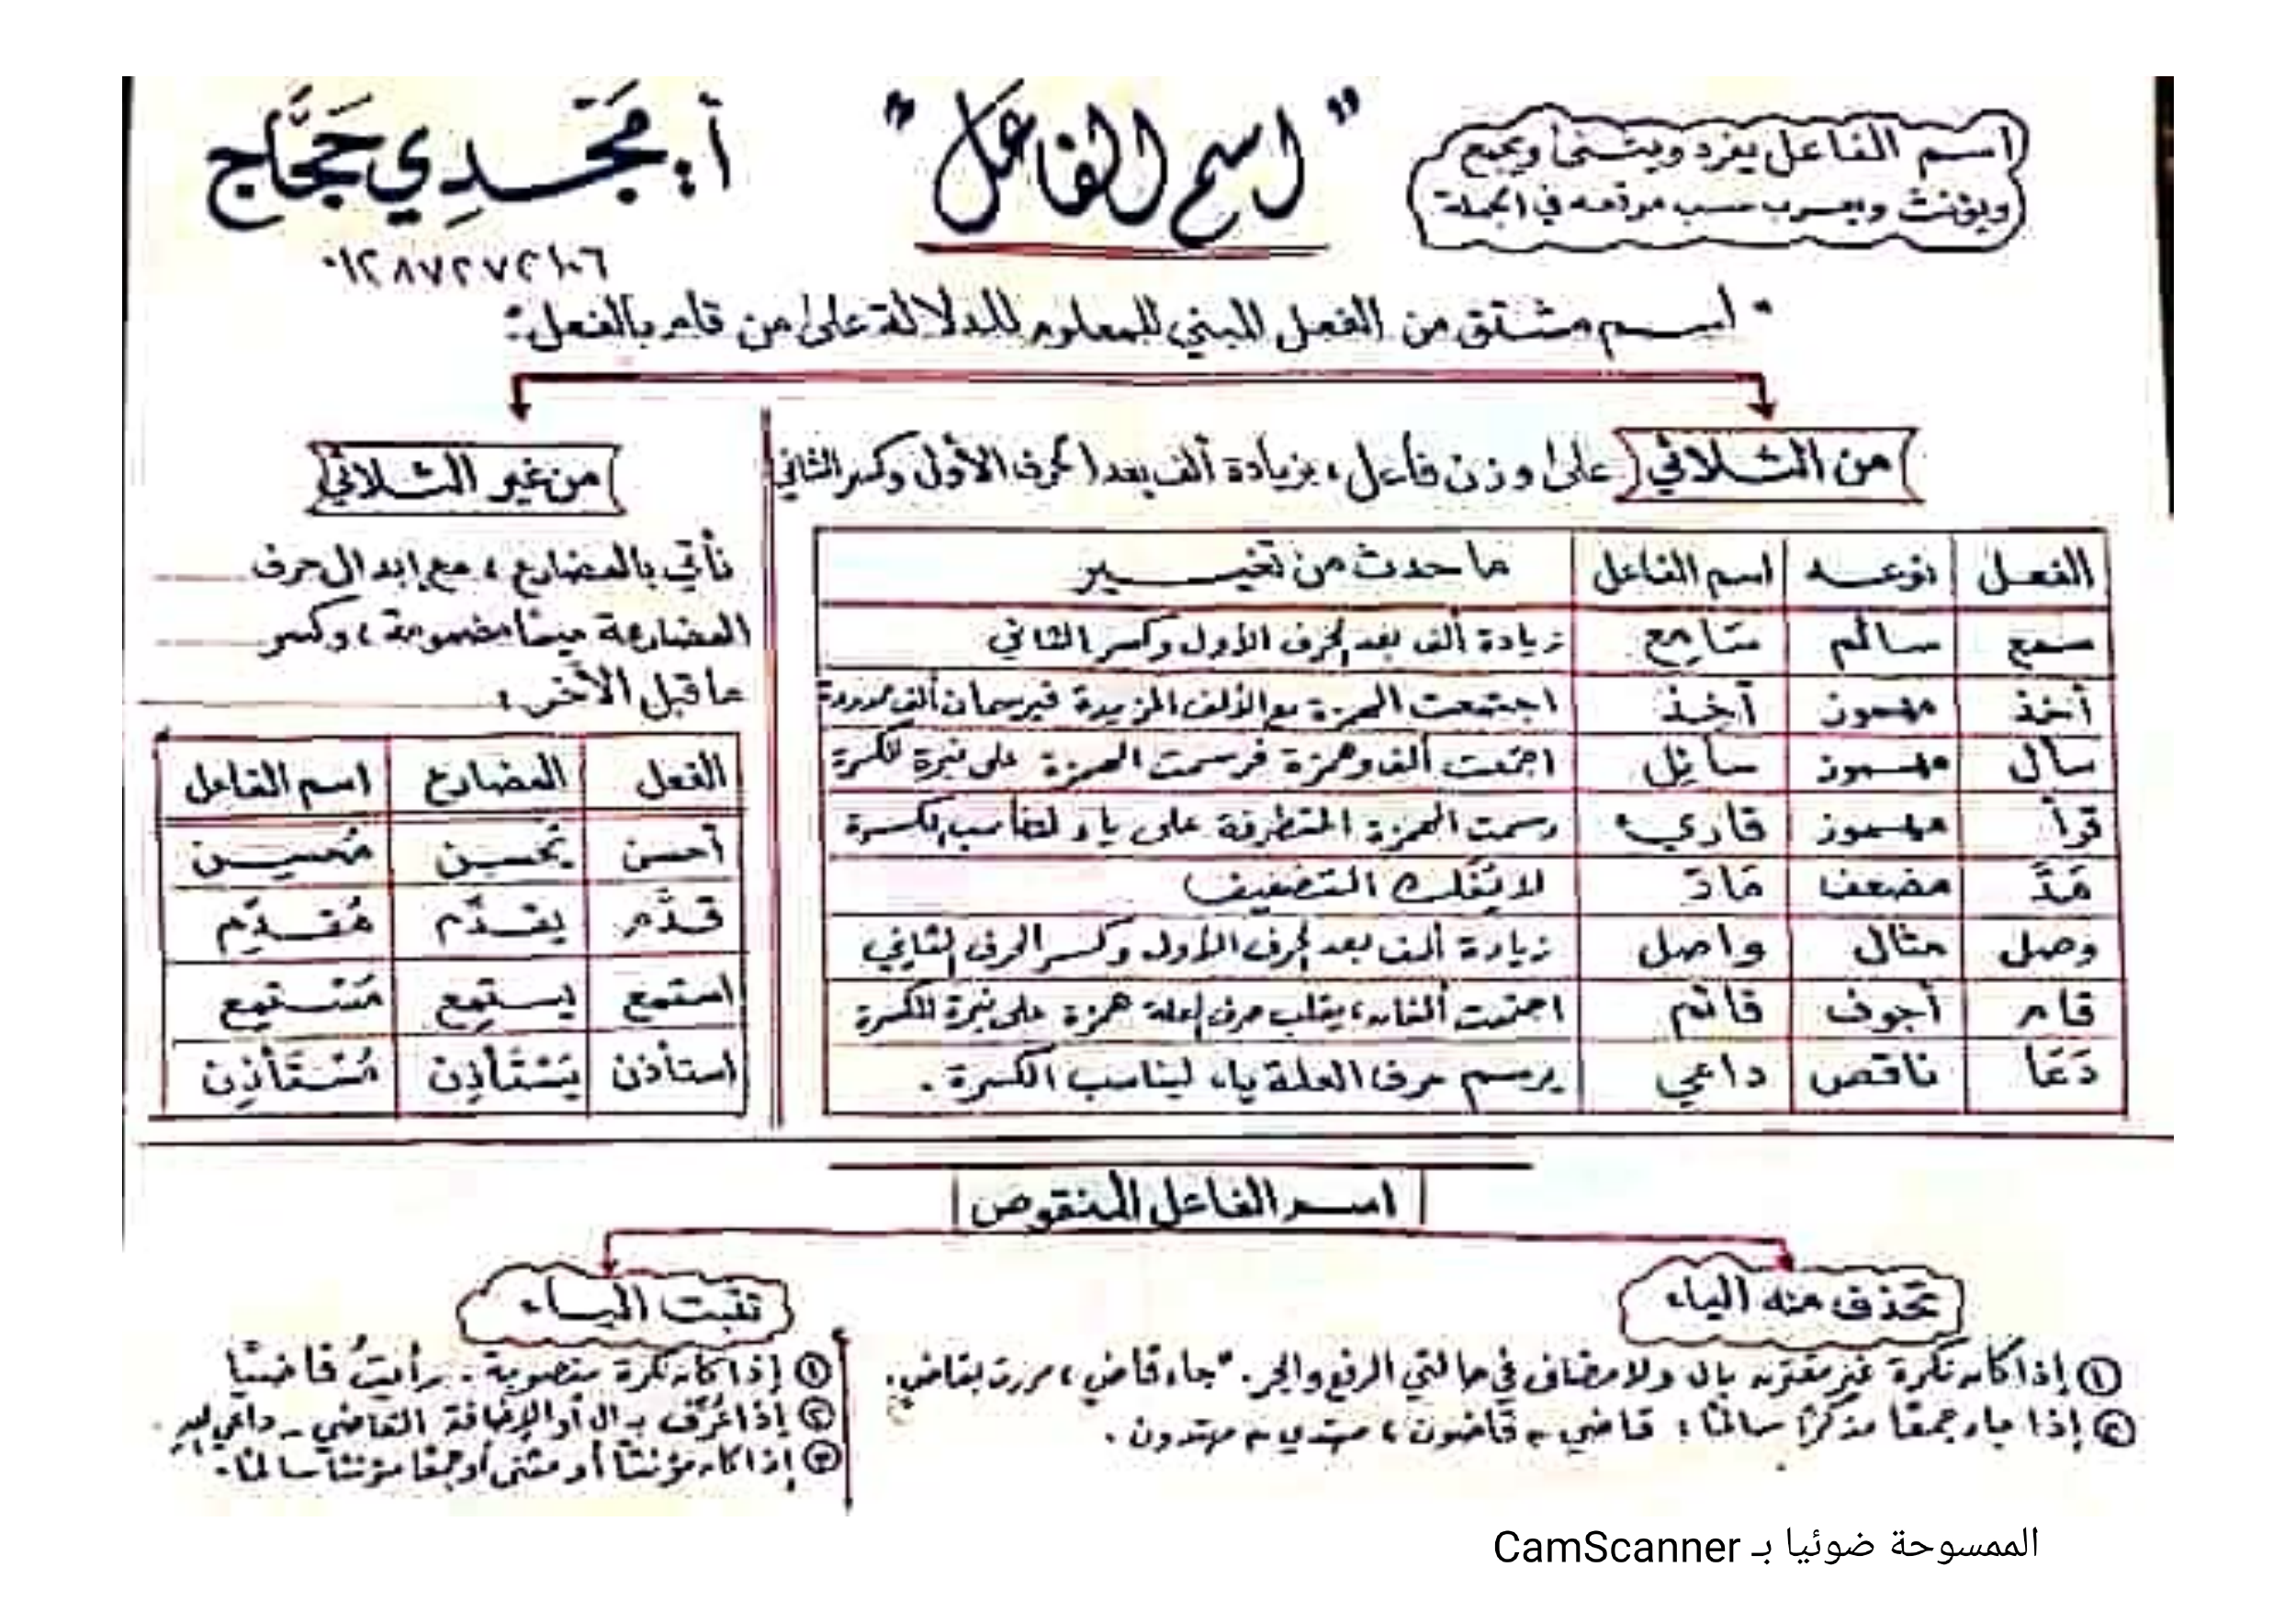 اسم الفاعل يفرد ويثنى ويجمع
ويؤنث ويعرب حسب موقعه في الجملة
"اسم الفاعل"
أ. مَجْدِي حَجَّاج
٠١٢٨٧٢٧٢١٠٦
• اسم مشتق من الفعل المبني للمعلوم للدلالة على من قام بالفعل:
من الثلاثي على وزن فاعل، بزيادة ألف بعد الحرف الأول وكسر الثاني
الفعل نوعه اسم الفاعل ما حدث من تغيير
سمع سالم سَامِع زيادة ألف بعد الحرف الأول وكسر الثاني
أخذ مهموز آخِذ اجتمعت الهمزة مع الألف المزيدة فيرسمان ألف ممدودة
سأل مهموز سائِل اجتمعت ألف وهمزة فرسمت الهمزة على نبرة للكسرة
قرأ مهموز قاريء رسمت الهمزة المتطرفة على ياء لتناسب الكسرة
مَدَّ مضعف مَادّ لا يُفَك التضعيف
وصل مثال واصل زيادة ألف بعد الحرف الأول وكسر الحرف الثاني
قام أجوف قائم اجتمعت ألفان، يقلب حرف العلة همزة على نبرة للكسرة
دَعَا ناقص داعي يرسم حرف العلة ياء ليناسب الكسرة.
من غير الثلاثي
نأتي بالمضارع، مع إبدال حرف
المضارعة ميمًا مضمومة، وكسر
ما قبل الآخر.
الفعل المضارع اسم الفاعل
أحسن يُحسِن مُحسِن
قدَّم يقدّم مُقدِّم
استمع يستمِع مُستمِع
استأذن يَسْتَأذِن مُسْتَأذِن
اسم الفاعل المنقوص
تحذف منه الياء
① إذا كان نكرة غير مقترن بال ولا مضاف في حالتي الرفع والجر. "جاء قاضٍ، مررت بقاضٍ.
② إذا جاء جمعًا مذكرًا سالمًا: قاضي ← قاضون، مهتدي ← مهتدون.
تثبت الياء
① إذا كان نكرة منصوبة. رأيتُ قاضيًا
② إذا عُرِّف بـ ال أو الإضافة القاضي - داعي
③ إذا كان مؤنثًا أو مثنى أو جمعًا مؤنثًا سالمًا.
الممسوحة ضوئيا بـ CamScanner